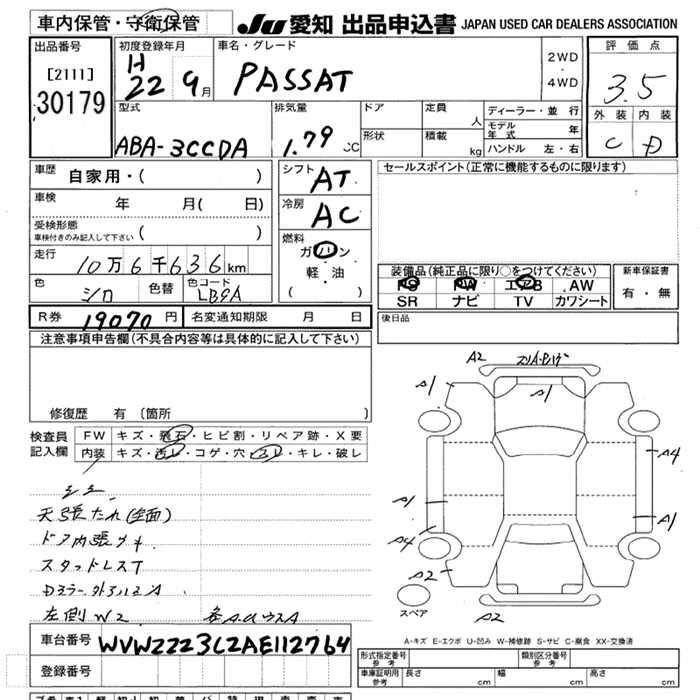 車内保管・守衛保管
JU 愛知 出品申込書 JAPAN USED CAR DEALERS ASSOCIATION
出品番号
[2111]
30179
初度登録年月
H
22 9月
車名・グレード
PASSAT
2WD
・
4WD
評価点
3.5
外装 内装
C D
型式
ABA-3CCDA
排気量
1.79 CC
ドア
形状
定員 人
積載 kg
ディーラー・並行
モデル年式 年
ハンドル 左・右
車歴 自家用・( )
車検 年 月( 日)
受検形態
車検付きのみ記入して下さい ( )
走行 10万6千636km
色 シロ 色替 色コード LB9A
シフト AT
冷房 AC
燃料
ガソリン
軽・油
( )
セールスポイント(正常に機能するものに限ります)
装備品(純正品に限り○をつけてください)
PS PW エアB AW
SR ナビ TV カワシート
新車保証書
有・無
R券 19070円 名変通知期限 月 日
後日品
注意事項申告欄(不具合内容等は具体的に記入して下さい)
修復歴 有 (箇所 )
検査員記入欄
FW キズ・飛石・ヒビ割・リペア跡・X要
内装 キズ・汚レ・コゲ・穴・スレ・キレ・破レ
天張たれ(全面)
ドア内張ウキ
スタッドレスT
左側W2
A2
A1
A1
A4
A1
A1
A4
A2
A2
スペア
A-キズ E-エクボ U-凹み W-補修跡 S-サビ C-腐食 XX-交換済
車台番号 WVWZZZ3CZAE112764
登録番号
形式指定番号 参考
類別区分番号 参考
車庫証明用 参考 長さ cm 幅 cm 高さ cm